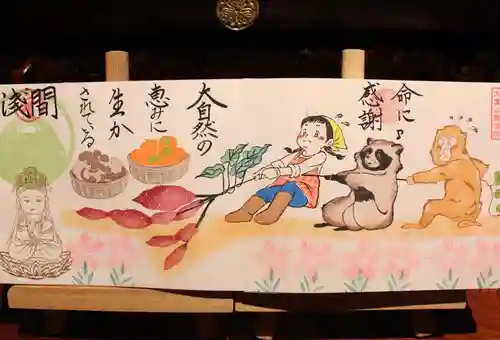 命に
感謝
大自然の
恵みに
生か
されている
淺間